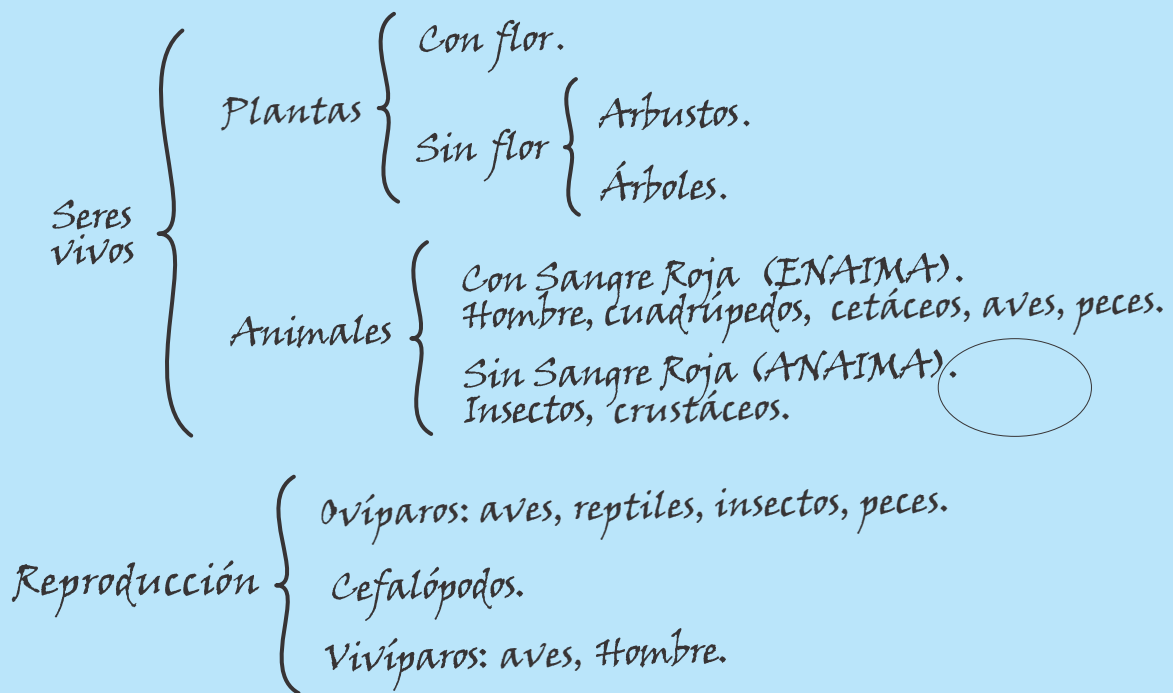 Seres
vivos
Plantas
Con flor.
Sin flor
Arbustos.
Árboles.
Animales
Con Sangre Roja (ENAIMA).
Hombre, cuadrúpedos, cetáceos, aves, peces.
Sin Sangre Roja (ANAIMA).
Insectos, crustáceos.
Reproducción
Ovíparos: aves, reptiles, insectos, peces.
Cefalópodos.
Vivíparos: aves, Hombre.